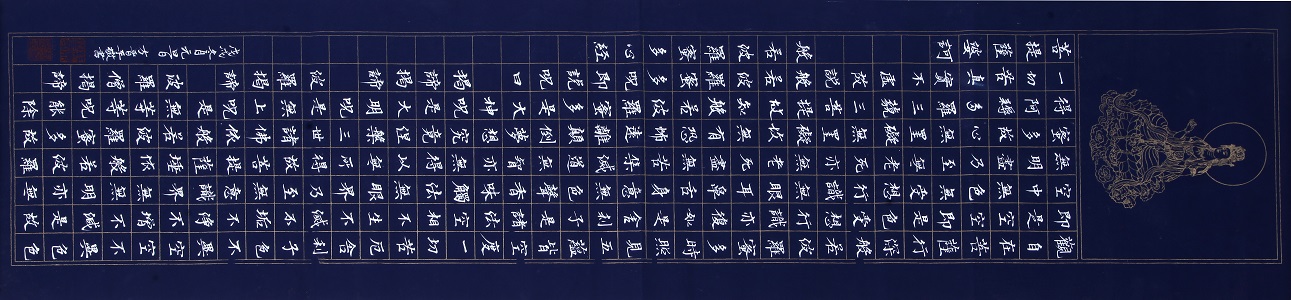 觀自在菩薩行深般若波羅蜜多時照見五蘊皆空度一切苦厄舍利子色不異空空不異色色
即是空空即是色受想行識亦復如是舍利子是諸法空相不生不滅不垢不淨不增不減是故
空中無色無受想行識無眼耳鼻舌身意無色聲香味觸法無眼界乃至無意識界無無明亦無
無明盡乃至無老死亦無老死盡無苦集滅道無智亦無得以無所得故菩提薩埵依般若波羅
蜜多故心無罣礙無罣礙故無有恐怖遠離顛倒夢想究竟涅槃三世諸佛依般若波羅蜜多故
得阿耨多羅三藐三菩提故知般若波羅蜜多是大神呪是大明呪是無上呪是無等等呪能除
一切苦真實不虛故說般若波羅蜜多呪即說呪曰 揭諦揭諦 波羅揭諦 波羅僧揭諦
菩提薩婆訶 般若波羅蜜多心經 敬書